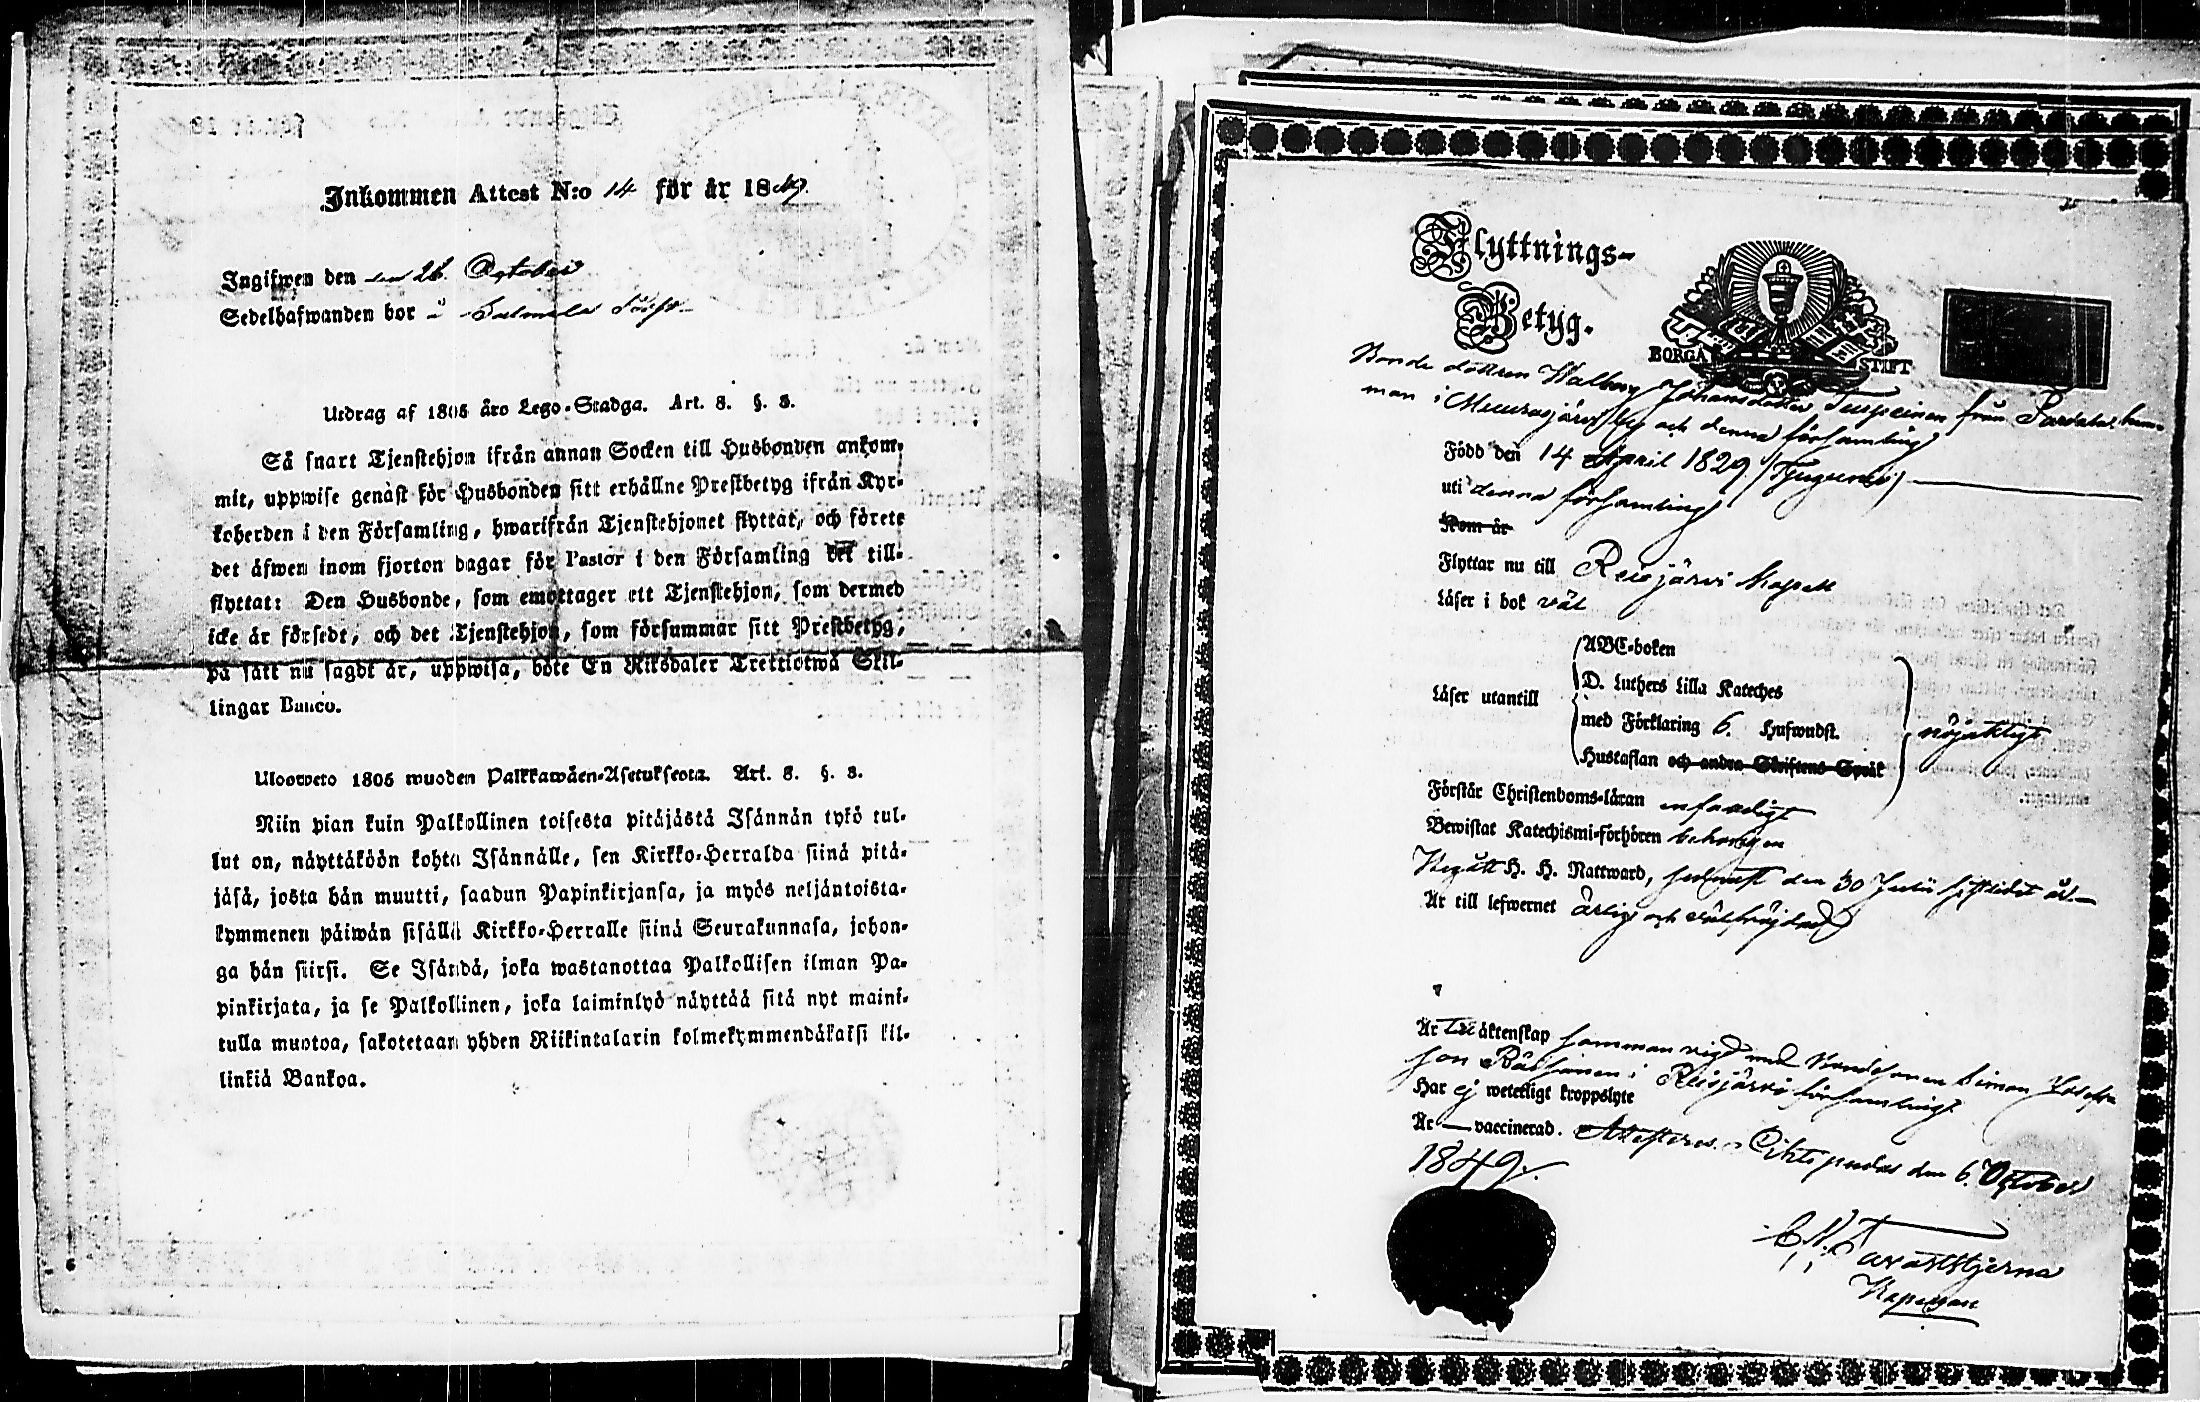 Inkommen Attest N:o 14 för år 1849.
Ingifwen den den 26. October
Sedelhafwanden bor i
Utdrag af 1805 års Lego-Stadga. Art. 8. §. 3.
Så snart Tjenstehjon ifrån annan Socken till Husbonden ankom-
mit, uppwise genast för Husbonden sitt erhållne Prestbetyg ifrån Kyr-
koherden i den Församling, hwarifrån Tjenstehjonet flyttat, och förete
det äfwen inom fjorton dagar för Pastor i den Församling det till-
flyttat: Den Husbonde, som emottager ett Tjenstehjon, som dermed
icke är försedt, och det Tjenstehjon, som försummar sitt Prestbetyg,
på sätt nu sagdt är, uppwisa, böte En Riksdaler Trettiotwå Skil-
lingar Banco.
Ulosweto 1805 wuoden Palkkawäen-Asetuksesta. Art. 8. §. 3.
Niin pian kuin Palkollinen toisesta pitäjästä Isännän tykö tul-
lut on, näyttäköön kohta Isännälle, sen Kirkko-Herralda siinä pitä-
jäsä, josta hän muutti, saadun Papinkirjansa, ja myös neljäntoista-
kymmenen päiwän sisällä Kirkko-Herralle siinä Seurakunnasa, johon-
ga hän siirsi. Se Isändä, joka wastanottaa Palkollisen ilman Pa-
pinkirjata, ja se Palkollinen, joka laiminlyö näyttää sitä nyt maini-
tulla muotoa, sakotetaan yhden Riikintalarin kolmekymmendäkaksi kil-
linkiä Bankoa.
Flyttnings-
Betyg.
BORGÅ STIFT
Bonde dottren Walborg Johansdotter från
man i Muurasjärvi by och denna församling
Född den 14 April 1829 (Tjugunio)
uti denna församling
Kom år
Flyttar nu till Reisjärvi Kapell
Läser i bok väl
Läser utantill
ABC-boken
D. Luthers Lilla Kateches
med Förklaring 6. Hufwudst.
Hustaflan och andra Skriftens Språk
nöjaktigt
Förstår Christendoms-läran enfaldigt
Bewistat Katechismi-förhören behörigen
Begått H. H. Nattward, senast den 30 Julii sistlidet år
Är till lefwernet ärlig och välfräjdad
Är till äktenskap sammanvigd med Bondesonen Simon Josefs-
son i Reisjärvi församling.
Har ej weterligt kroppslyte
Är — vaccinerad. Attesteras Pihtipudas den 6. October
1849.
C. N. Tavaststjerna
Kapellan